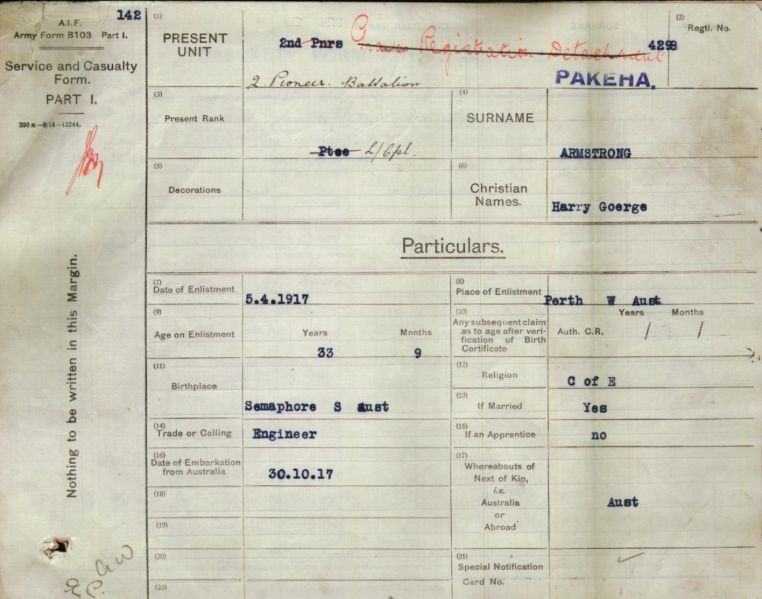 A.I.F.
142
Army Form B103 Part I.
Service and Casualty
Form.
PART I.
200 m—8/16—12244.
Nothing to be written in this Margin.
(1)
PRESENT
UNIT
2nd Pnrs
Graves Registration Detachment
2 Pioneer Battalion
(2)
Regtl. No.
4298
PAKEHA.
(3)
Present Rank
Ptee L/Cpl.
(4)
SURNAME
ARMSTRONG
(5)
Decorations
(6)
Christian
Names.
Harry Goerge
Particulars.
(7)
Date of Enlistment
5.4.1917
(8)
Place of Enlistment
Perth W Aust
(9)
Age on Enlistment
Years Months
33 9
(10)
Any subsequent claim
as to age after veri-
fication of Birth
Certificate
Auth. C.R.
Years Months
/ /
(11)
Birthplace
Semaphore S Aust
(12)
Religion
C of E
(13)
If Married
Yes
(14)
Trade or Calling
Engineer
(15)
If an Apprentice
no
(16)
Date of Embarkation
from Australia
30.10.17
(17)
Whereabouts of
Next of Kin,
i.e.
Australia
or
Abroad
Aust
(18)
(19)
(20)
(21)
Special Notification
Card No.
(22)